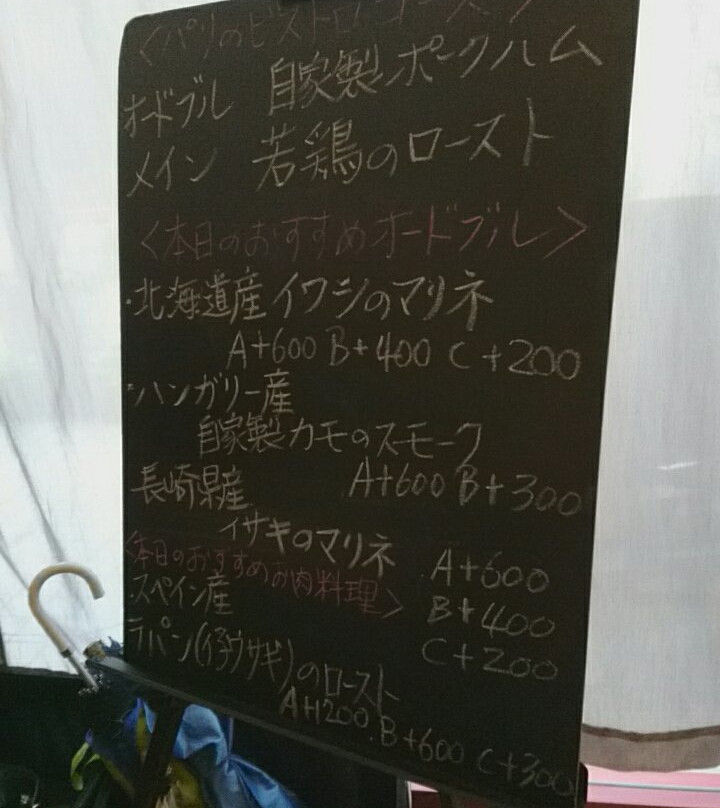 <パリのビストロコース>
オードブル 自家製ポークハム
メイン 若鶏のロースト
<本日のおすすめオードブル>
・北海道産イワシのマリネ
A+600 B+400 C+200
・ハンガリー産
自家製カモのスモーク
A+600 B+300
長崎県産
イサキのマリネ
A+600
B+400
C+200
<本日のおすすめお肉料理>
・スペイン産
ラパン(仔ウサギ)のロースト
A+1200.B+600 C+300